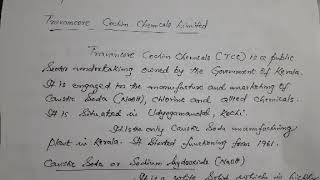 Travancore Cochin Chemicals Limited
Travancore Cochin Chemicals (TCC) is a public
Sector undertaking owned by the Government of Kerala.
It is engaged to the manufacture and marketing of
Caustic Soda (NaOH), Chlorine and allied Chemicals.
It is Situated in Udyogamandal, Kochi.
It is the only Caustic Soda manufacturing
plant in Kerala. It Started functioning from 1951.
Caustic Soda or Sodium hydroxide (NaOH)
It is a white Solid which is highly